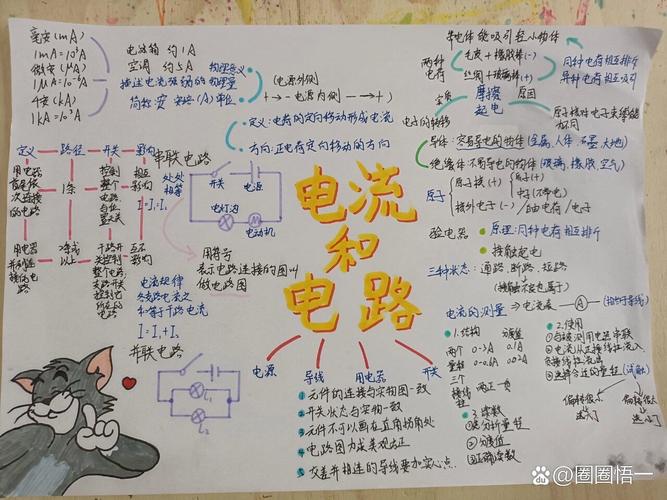 毫安(mA)
1mA=10⁻³A
微安(μA)
1μA=10⁻⁶A
千安(kA)
1kA=10³A
电冰箱 约1A
空调 约5A
物理意义
描述电流强弱的物理量
简称安 安培(A) 单位
(电源外侧
+→− 电源内侧 −→+)
定义:电荷的定向移动形成电流
方向:正电荷定向移动的方向
带电体能吸引轻小物体
两种电荷
毛皮+橡胶棒(-)
丝绸+玻璃棒(+)
同种电荷相互排斥
异种电荷相互吸引
摩擦起电
原因
电子的转移
原子核对电子束缚能力不同
导体:容易导电的物体(金属,人体,石墨,大地)
绝缘体:不易导电的物体(玻璃,橡胶,空气)
原子
原子核(+)
质子(+)
中子(不带电)
核外电子(-)
自由电荷/电子
验电器
原理:同种电荷相互排斥
接触起电
三种状态:通路,断路,短路
定义
路径
开关
影响
用电器首尾依次连接的电路
1条
控制整个电路,与位置无关
相互影响
串联电路
处处相等
I=I₁=I₂
用电器并列连接的电路
2条或以上
干路开关控制整个电路,支路开关控制它所在的电路
互不影响
电流规律
各支路电流之和等于干路电流
I=I₁+I₂
并联电路
开关
电源
电灯泡
电动机
用符号
表示电路连接的图叫
做电路图
L₁
L₂
电流和电路
电源
导线
用电器
开关
1 元件的连接与实物图一致
2 开关状态与实物一致
3 元件不可以画在直角拐角处
4 电路图力求美观端正
5 交叉并相连的导线要加实心点.
电流的测量
电流表 —A—
(相当于导线)
1.结构
两个量程
分度值
0-3A 0.1A
0-0.6A 0.02A
三个接线柱
两正一负
3.读数
①分析量程
②分度值
③正确读数
2.使用
①与被测用电器串联
(试触)
百度
@圈圈悟一